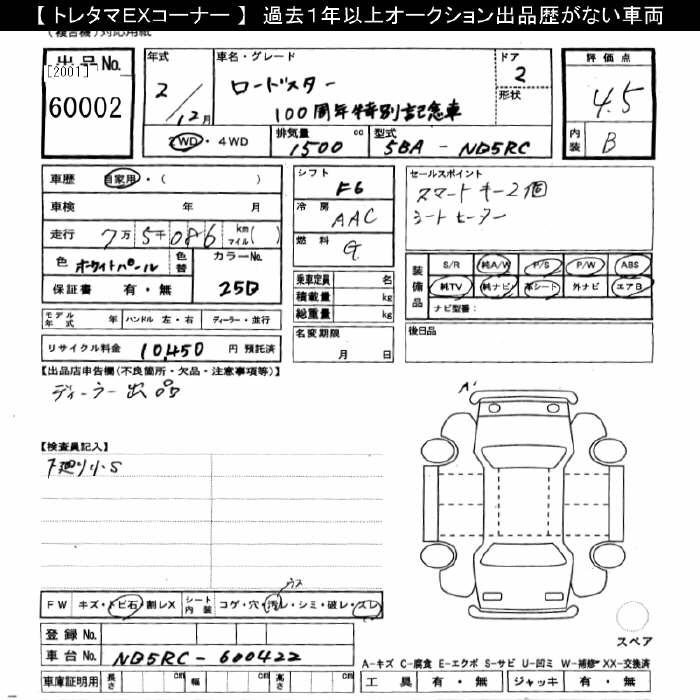 【 トレタマEXコーナー 】 過去1年以上オークション出品歴がない車両
(複合機)対応用紙
出品No. [2001] 60002
年式 2/12月
車名・グレード ロードスター 100周年特別記念車
ドア 2 形状
評価点 4.5
内装 B
2WD・4WD 排気量 1500 cc 型式 5BA - ND5RC
車歴 自家用・( )
車検 年 月
走行 7万5千086 km マイル( )
色 ホワイトパール 色替 カラーNo. 25D
保証書 有・無
モデル年式 年 ハンドル 左・右 ディーラー・並行
リサイクル料金 10,450 円 預託済
シフト F6
冷房 AAC
燃料 G
乗車定員 名
積載量 kg
総重量 kg
名変期限 月 日
セールスポイント
スマートキー2個
シートヒーター
装備品 S/R 純A/W P/S P/W ABS
純TV 純ナビ 革シート 外ナビ エアB
ナビ型番:
後日品
【出品店申告欄(不良箇所・欠品・注意事項等)】
ディーラー出品
A'
【検査員記入】
下廻り小S
ウス
FW キズ・トビ石・割レX シート内装 コゲ・穴・汚レ・シミ・破レ・スレ
登録No.
車台No. ND5RC-600422
車庫証明用 長さ cm 幅 cm 高さ cm
スペア
A-キズ C-腐食 E-エクボ S-サビ U-凹ミ W-補修 XX-交換済
工具 有・無 ジャッキ 有・無